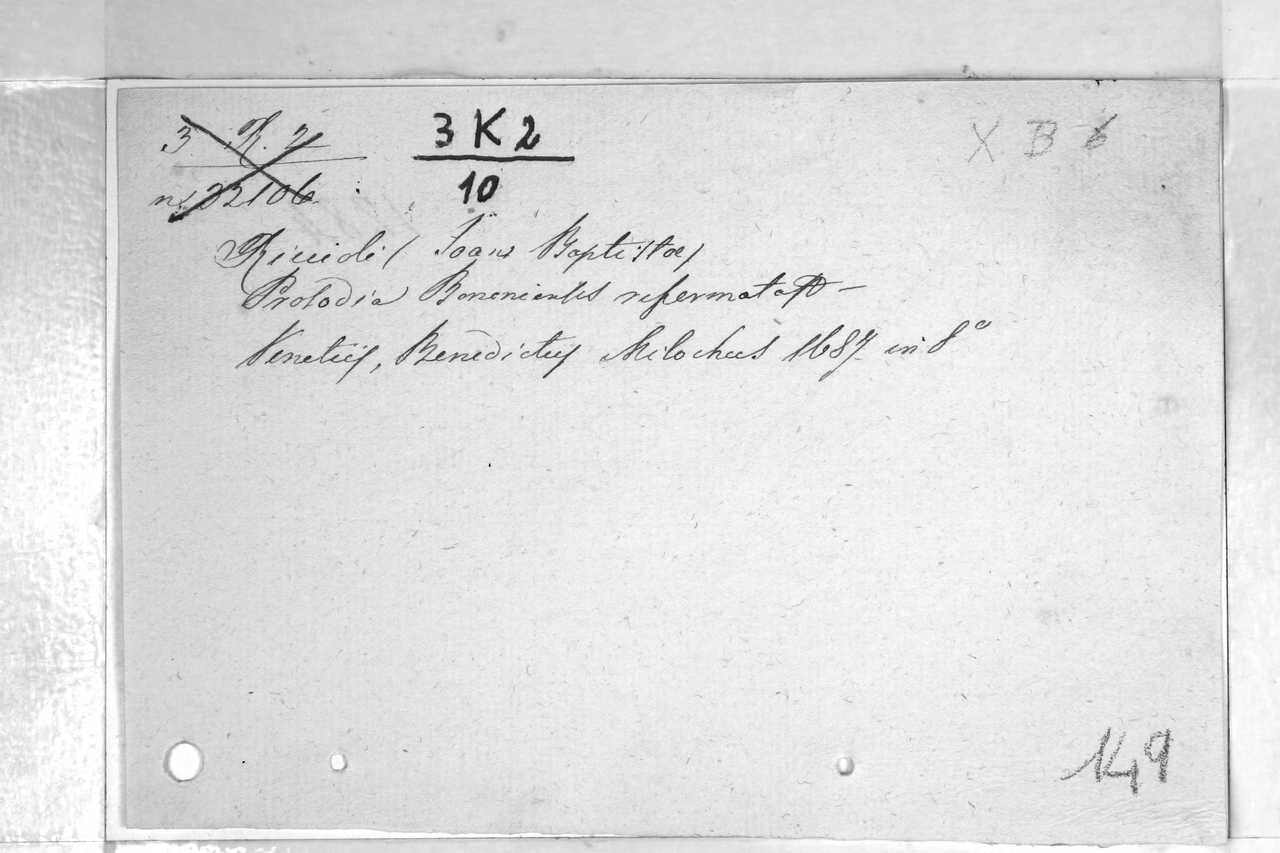 3 R. 2
3 K 2
X B 6
n. 22106
10
Riccioli (Joan Baptistae)
Prosodia Bononiensis reformata
Venetiis, Benedictus Milochus 1687 in 8°
149